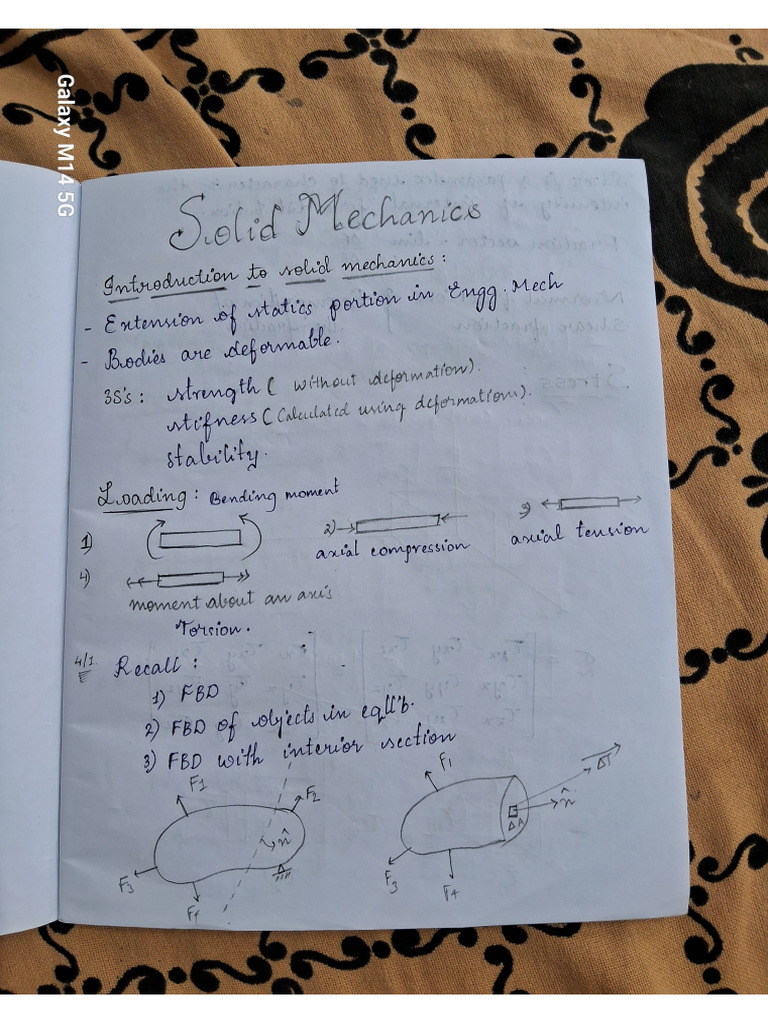 Galaxy M14 5G
Solid Mechanics
Introduction to solid mechanics :
- Extension of statics portion in Engg. Mech
- Bodies are deformable.
3S's : strength ( without deformation).
stifness ( calculated using deformations).
stability.
Loading : Bending moment
1)
2)
axial compression
3)
axial tension
4)
moment about an axis
Torsion.
4/1. Recall :
1) FBD
2) FBD of objects in eqll'b.
3) FBD with interior section
F1
F2
n̂
F3
F4
F1
ΔT
n̂
ΔA
F3
F4